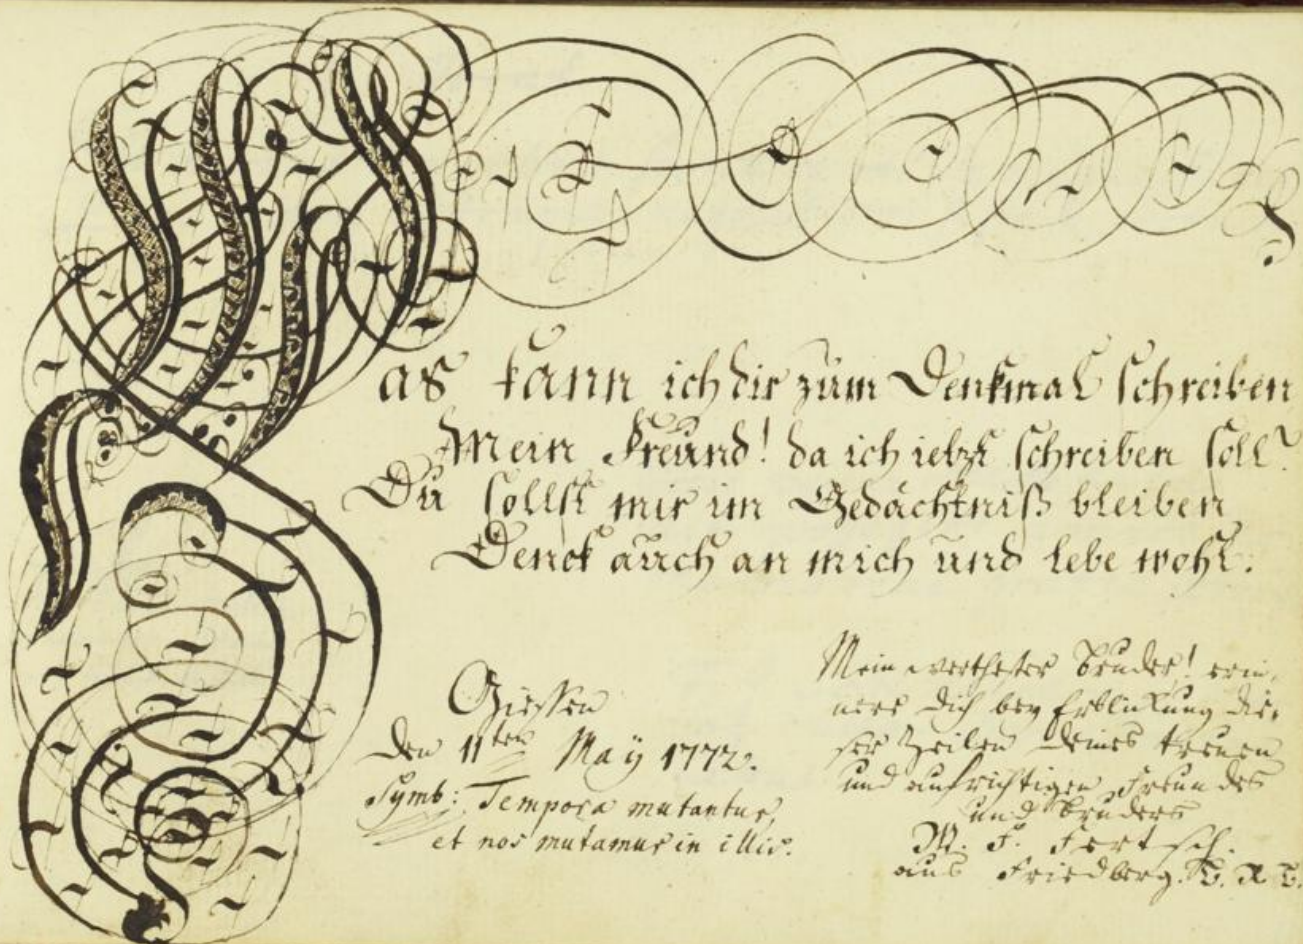 Was kann ich dir zum Denkmal schreiben
Mein Freund! da ich ietzt schreiben soll?
Du sollst mir im Gedächtniß bleiben
Denck auch an mich und lebe wohl.
Giessen
den 11ten May 1772.
Symb: Tempora mutantur,
et nos mutamur in illis.
Mein werthester Bruder! erin,
nere dich bey Erblickung die,
ser Zeilen deines treuen
und aufrichtigen Freundes
und Bruders
M. F. Fertsch.
aus Friedberg.